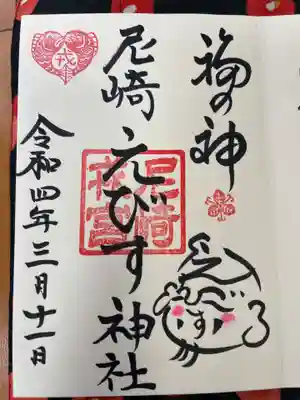 福の神
尼崎えびす神社
令和四年三月十一日
戎
尼崎
戎宮
えびす